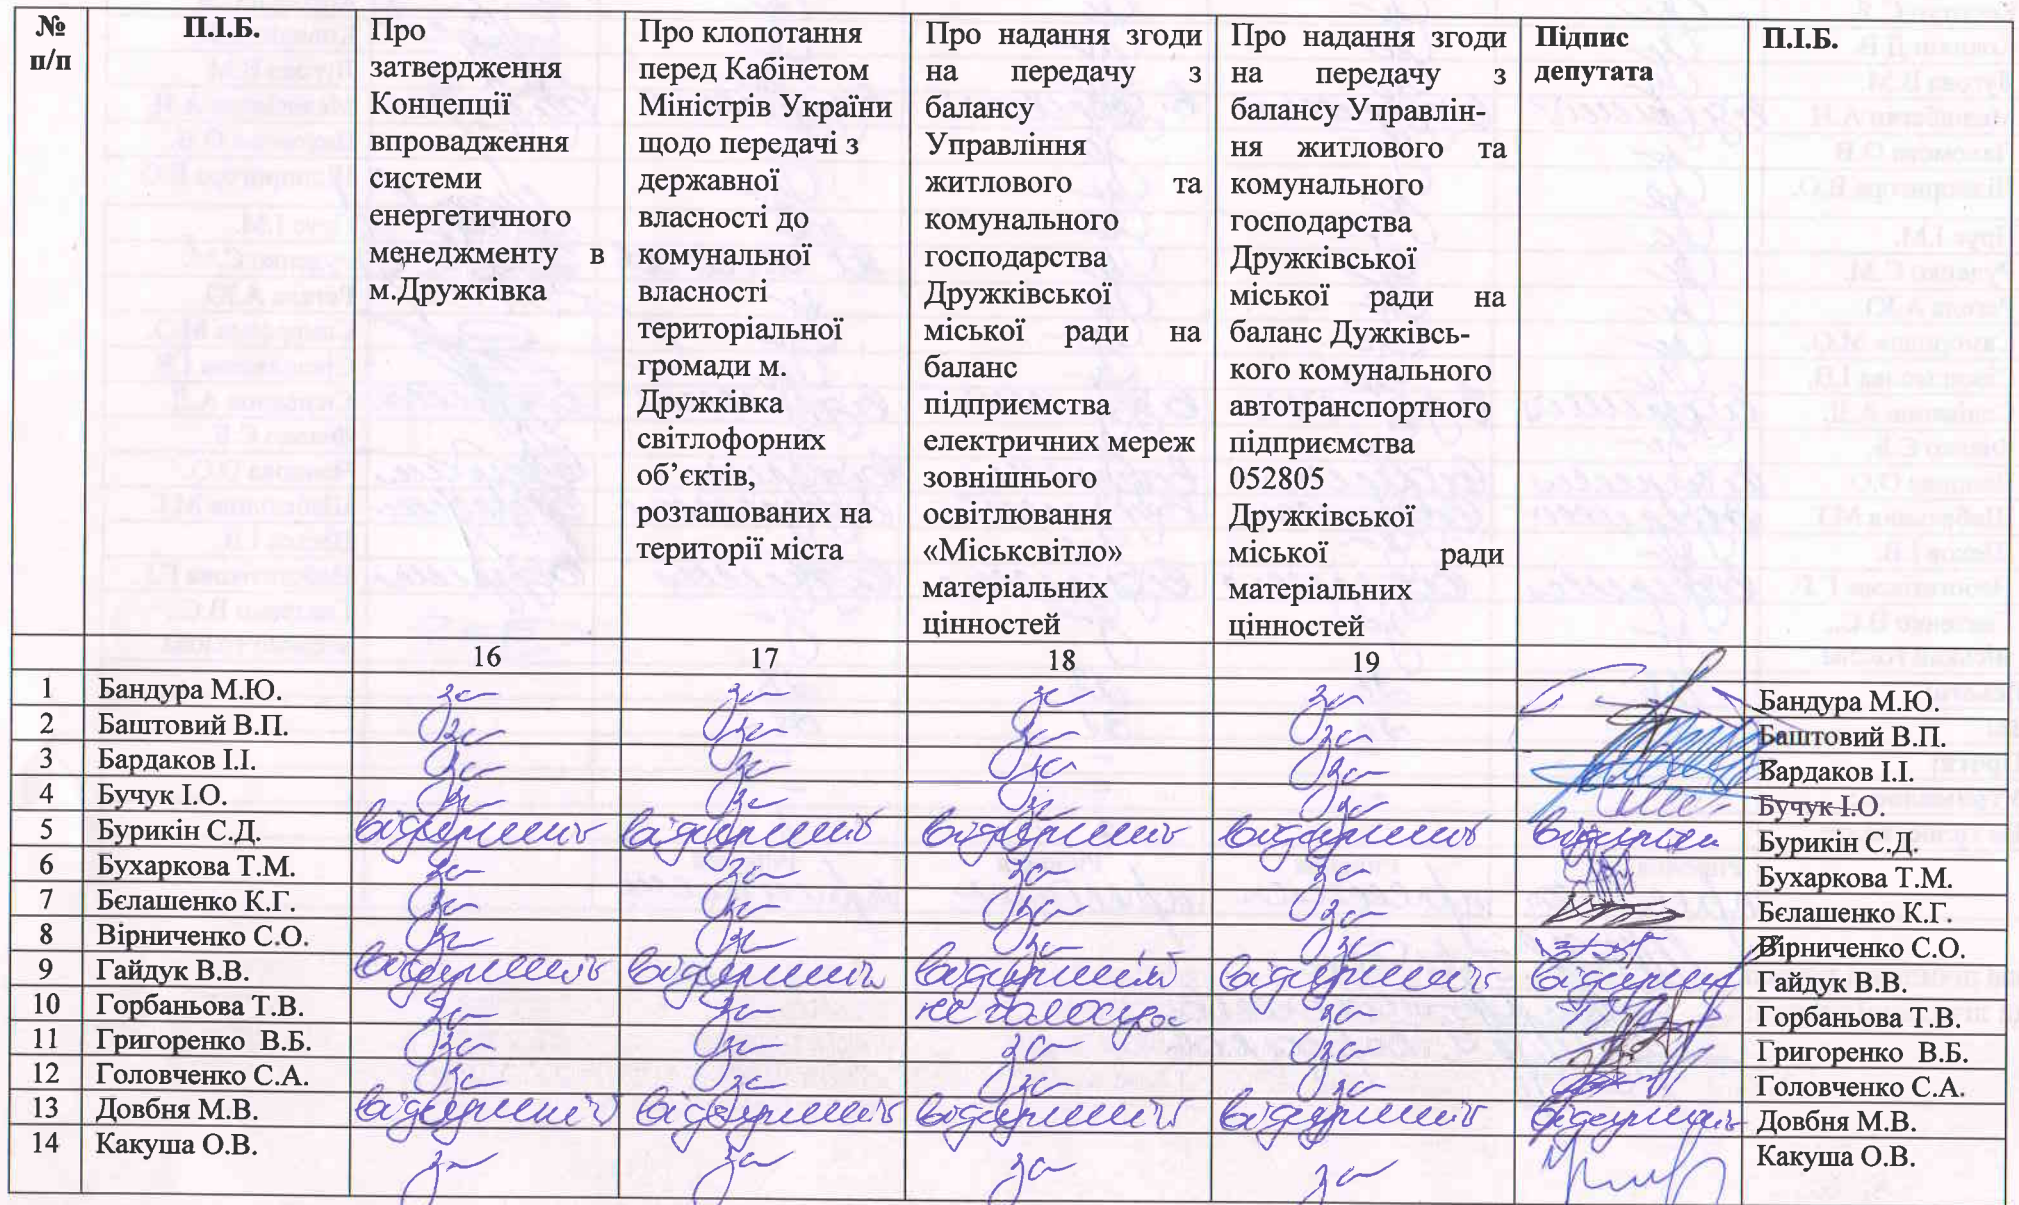 № п/п | П.І.Б. | Про затвердження Концепції впровадження системи енергетичного менеджменту в м.Дружківка | Про клопотання перед Кабінетом Міністрів України щодо передачі з державної власності до комунальної власності територіальної громади м. Дружківка світлофорних об’єктів, розташованих на території міста | Про надання згоди на передачу з балансу Управління житлового та комунального господарства Дружківської міської ради на баланс підприємства електричних мереж зовнішнього освітлювання «Міськсвітло» матеріальних цінностей | Про надання згоди на передачу з балансу Управлін-ня житлового та комунального господарства Дружківської міської ради на баланс Дужківсь-кого комунального автотранспортного підприємства 052805 Дружківської міської ради матеріальних цінностей | Підпис депутата | П.І.Б.
16 | 17 | 18 | 19
1 | Бандура М.Ю. | за | за | за | за | Бандура М.Ю.
2 | Баштовий В.П. | за | за | за | за | Баштовий В.П.
3 | Бардаков І.І. | за | за | за | за | Бардаков І.І.
4 | Бучук І.О. | за | за | за | за | Бучук І.О.
5 | Бурикін С.Д. | відсутній | відсутній | відсутній | відсутній | відсутній | Бурикін С.Д.
6 | Бухаркова Т.М. | за | за | за | за | Бухаркова Т.М.
7 | Бєлашенко К.Г. | за | за | за | за | Бєлашенко К.Г.
8 | Вірниченко С.О. | за | за | за | за | Вірниченко С.О.
9 | Гайдук В.В. | відсутній | відсутній | відсутній | відсутній | відсутній | Гайдук В.В.
10 | Горбаньова Т.В. | за | за | не голосував | за | Горбаньова Т.В.
11 | Григоренко В.Б. | за | за | за | за | Григоренко В.Б.
12 | Головченко С.А. | за | за | за | за | Головченко С.А.
13 | Довбня М.В. | відсутній | відсутній | відсутній | відсутній | відсутній | Довбня М.В.
14 | Какуша О.В. | за | за | за | за | Какуша О.В.